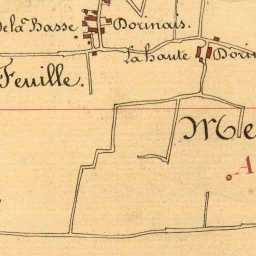 dela Basse Dorinais.
la haute Dorin
Feuille.
Me
A